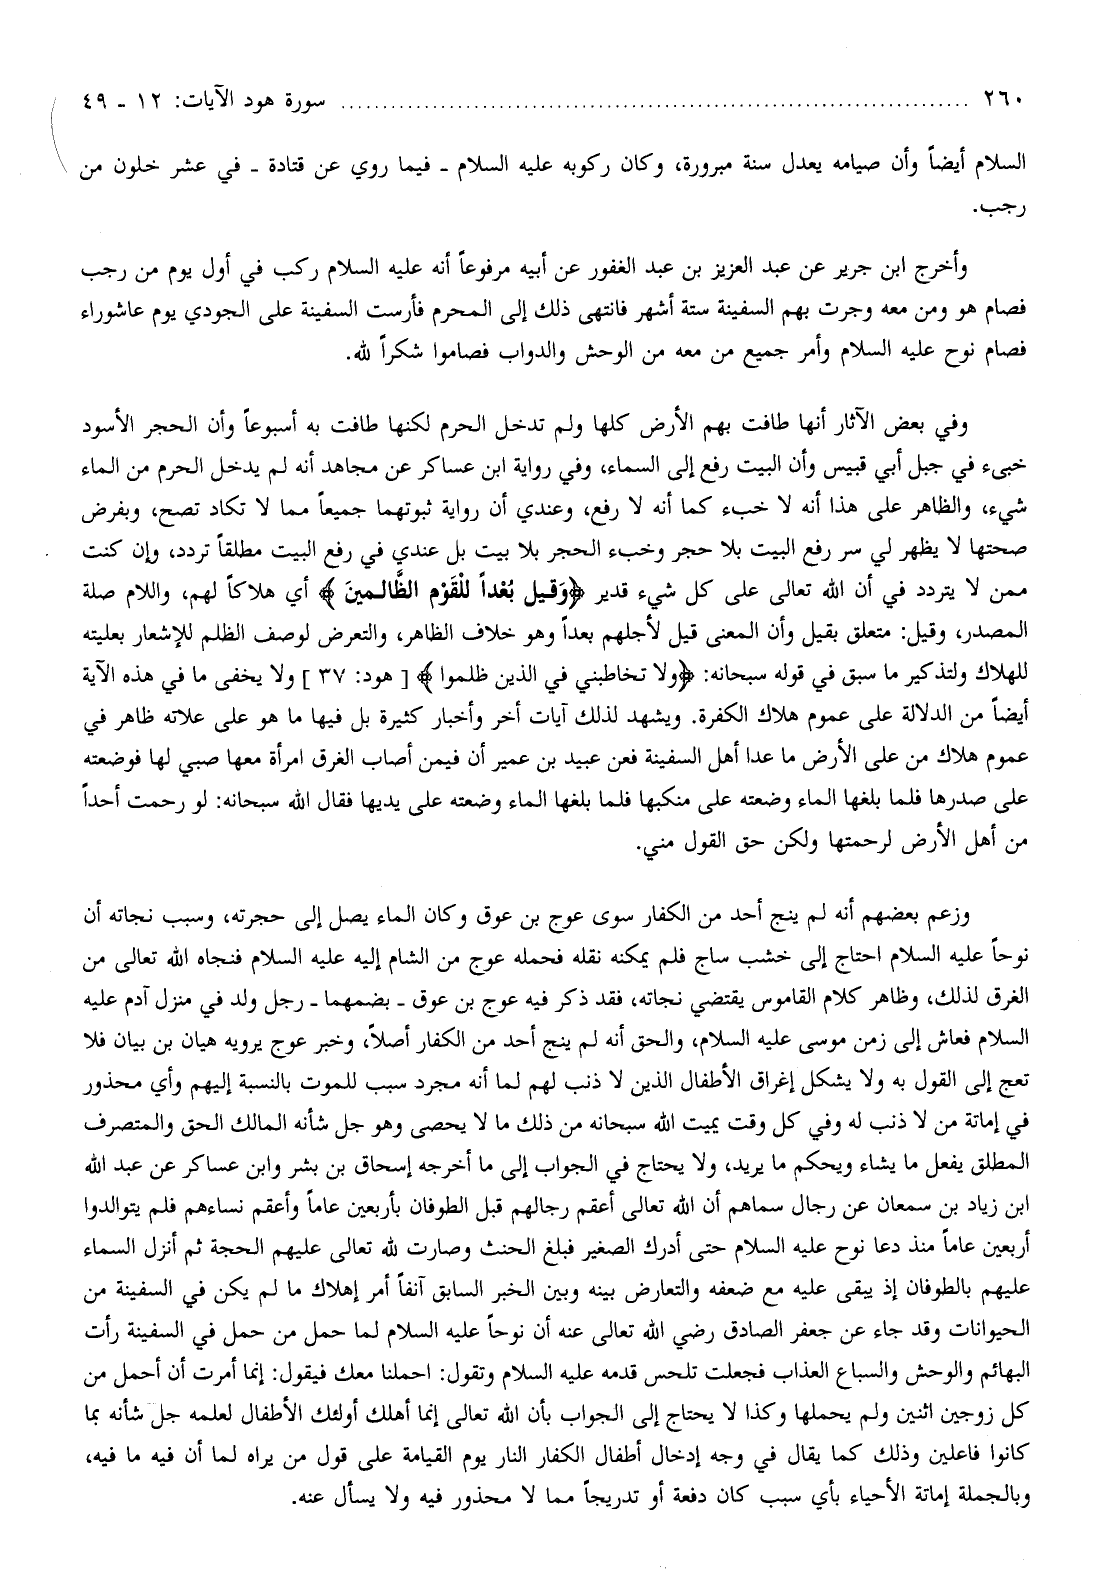 ٢٦٠ ........................................................................... سورة هود الآيات: ١٢ ـ ٤٩
السلام أيضاً وأن صيامه يعدل سنة مبرورة، وكان ركوبه عليه السلام ـ فيما روي عن قتادة ـ في عشر خلون من
رجب.
وأخرج ابن جرير عن عبد العزيز بن عبد الغفور عن أبيه مرفوعاً أنه عليه السلام ركب في أول يوم من رجب
فصام هو ومن معه وجرت بهم السفينة ستة أشهر فانتهى ذلك إلى المحرم فأرست السفينة على الجودي يوم عاشوراء
فصام نوح عليه السلام وأمر جميع من معه من الوحش والدواب فصاموا شكراً لله.
وفي بعض الآثار أنها طافت بهم الأرض كلها ولم تدخل الحرم لكنها طافت به أسبوعاً وأن الحجر الأسود
خبىء في جبل أبي قبيس وأن البيت رفع إلى السماء، وفي رواية ابن عساكر عن مجاهد أنه لم يدخل الحرم من الماء
شيء، والظاهر على هذا أنه لا خبء كما أنه لا رفع، وعندي أن رواية ثبوتهما جميعاً مما لا تكاد تصح، وبفرض
صحتها لا يظهر لي سر رفع البيت بلا حجر وخبء الحجر بلا بيت بل عندي في رفع البيت مطلقاً تردد، وإن كنت
ممن لا يتردد في أن الله تعالى على كل شيء قدير ﴿وَقيل بُعْداً للْقَوْم الظَّالمينَ﴾ أي هلاكاً لهم، واللام صلة
المصدر، وقيل: متعلق بقيل وأن المعنى قيل لأجلهم بعداً وهو خلاف الظاهر، والتعرض لوصف الظلم للإشعار بعليته
للهلاك ولتذكير ما سبق في قوله سبحانه: ﴿ولا تخاطبني في الذين ظلموا﴾ [ هود: ٣٧ ] ولا يخفى ما في هذه الآية
أيضاً من الدلالة على عموم هلاك الكفرة. ويشهد لذلك آيات أخر وأخبار كثيرة بل فيها ما هو على علاته ظاهر في
عموم هلاك من على الأرض ما عدا أهل السفينة فعن عبيد بن عمير أن فيمن أصاب الغرق امرأة معها صبي لها فوضعته
على صدرها فلما بلغها الماء وضعته على منكبها فلما بلغها الماء وضعته على يديها فقال الله سبحانه: لو رحمت أحداً
من أهل الأرض لرحمتها ولكن حق القول مني.
وزعم بعضهم أنه لم ينج أحد من الكفار سوى عوج بن عوق وكان الماء يصل إلى حجرته، وسبب نجاته أن
نوحاً عليه السلام احتاج إلى خشب ساج فلم يمكنه نقله فحمله عوج من الشام إليه عليه السلام فنجاه الله تعالى من
الغرق لذلك، وظاهر كلام القاموس يقتضي نجاته، فقد ذكر فيه عوج بن عوق ـ بضمهما ـ رجل ولد في منزل آدم عليه
السلام فعاش إلى زمن موسى عليه السلام، والحق أنه لم ينج أحد من الكفار أصلاً، وخبر عوج يرويه هيان بن بيان فلا
تعج إلى القول به ولا يشكل إغراق الأطفال الذين لا ذنب لهم لما أنه مجرد سبب للموت بالنسبة إليهم وأي محذور
في إماتة من لا ذنب له وفي كل وقت يميت الله سبحانه من ذلك ما لا يحصى وهو جل شأنه المالك الحق والمتصرف
المطلق يفعل ما يشاء ويحكم ما يريد، ولا يحتاج في الجواب إلى ما أخرجه إسحاق بن بشر وابن عساكر عن عبد الله
ابن زياد بن سمعان عن رجال سماهم أن الله تعالى أعقم رجالهم قبل الطوفان بأربعين عاماً وأعقم نساءهم فلم يتوالدوا
أربعين عاماً منذ دعا نوح عليه السلام حتى أدرك الصغير فبلغ الحنث وصارت لله تعالى عليهم الحجة ثم أنزل السماء
عليهم بالطوفان إذ يبقى عليه مع ضعفه والتعارض بينه وبين الخبر السابق آنفاً أمر إهلاك ما لم يكن في السفينة من
الحيوانات وقد جاء عن جعفر الصادق رضي الله تعالى عنه أن نوحاً عليه السلام لما حمل من حمل في السفينة رأت
البهائم والوحش والسباع العذاب فجعلت تلحس قدمه عليه السلام وتقول: احملنا معك فيقول: إنما أمرت أن أحمل من
كل زوجين اثنين ولم يحملها وكذا لا يحتاج إلى الجواب بأن الله تعالى إنما أهلك أولئك الأطفال لعلمه جل شأنه بما
كانوا فاعلين وذلك كما يقال في وجه إدخال أطفال الكفار النار يوم القيامة على قول من يراه لما أن فيه ما فيه،
وبالجملة إماتة الأحياء بأي سبب كان دفعة أو تدريجاً مما لا محذور فيه ولا يسأل عنه.